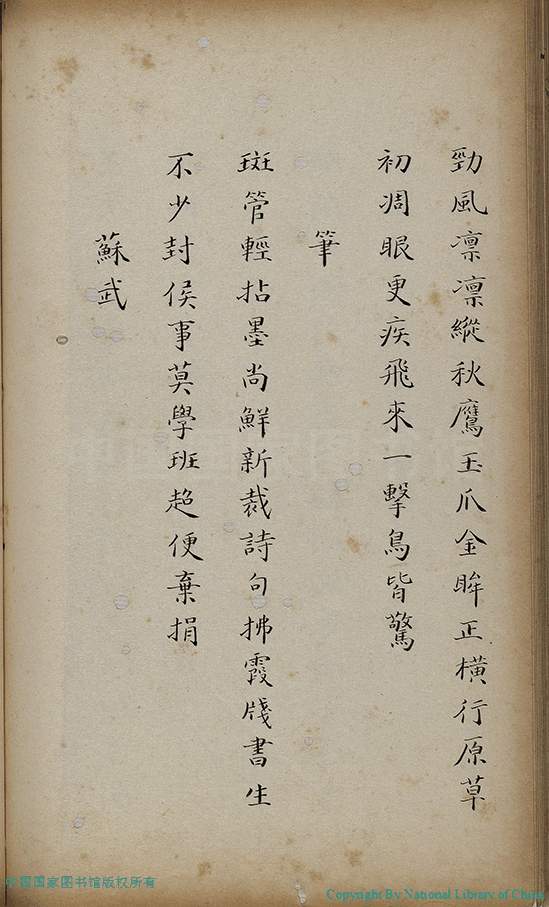 勁風凛凛縱秋鷹玉爪金眸正橫行原草
初凋眼更疾飛來一擊鳥皆驚
筆
斑管輕拈墨尚鮮新裁詩句拂霞牋書生
不少封侯事莫學班超便棄捐
蘇武
中国国家图书馆版权所有
Copyright By National Library of China